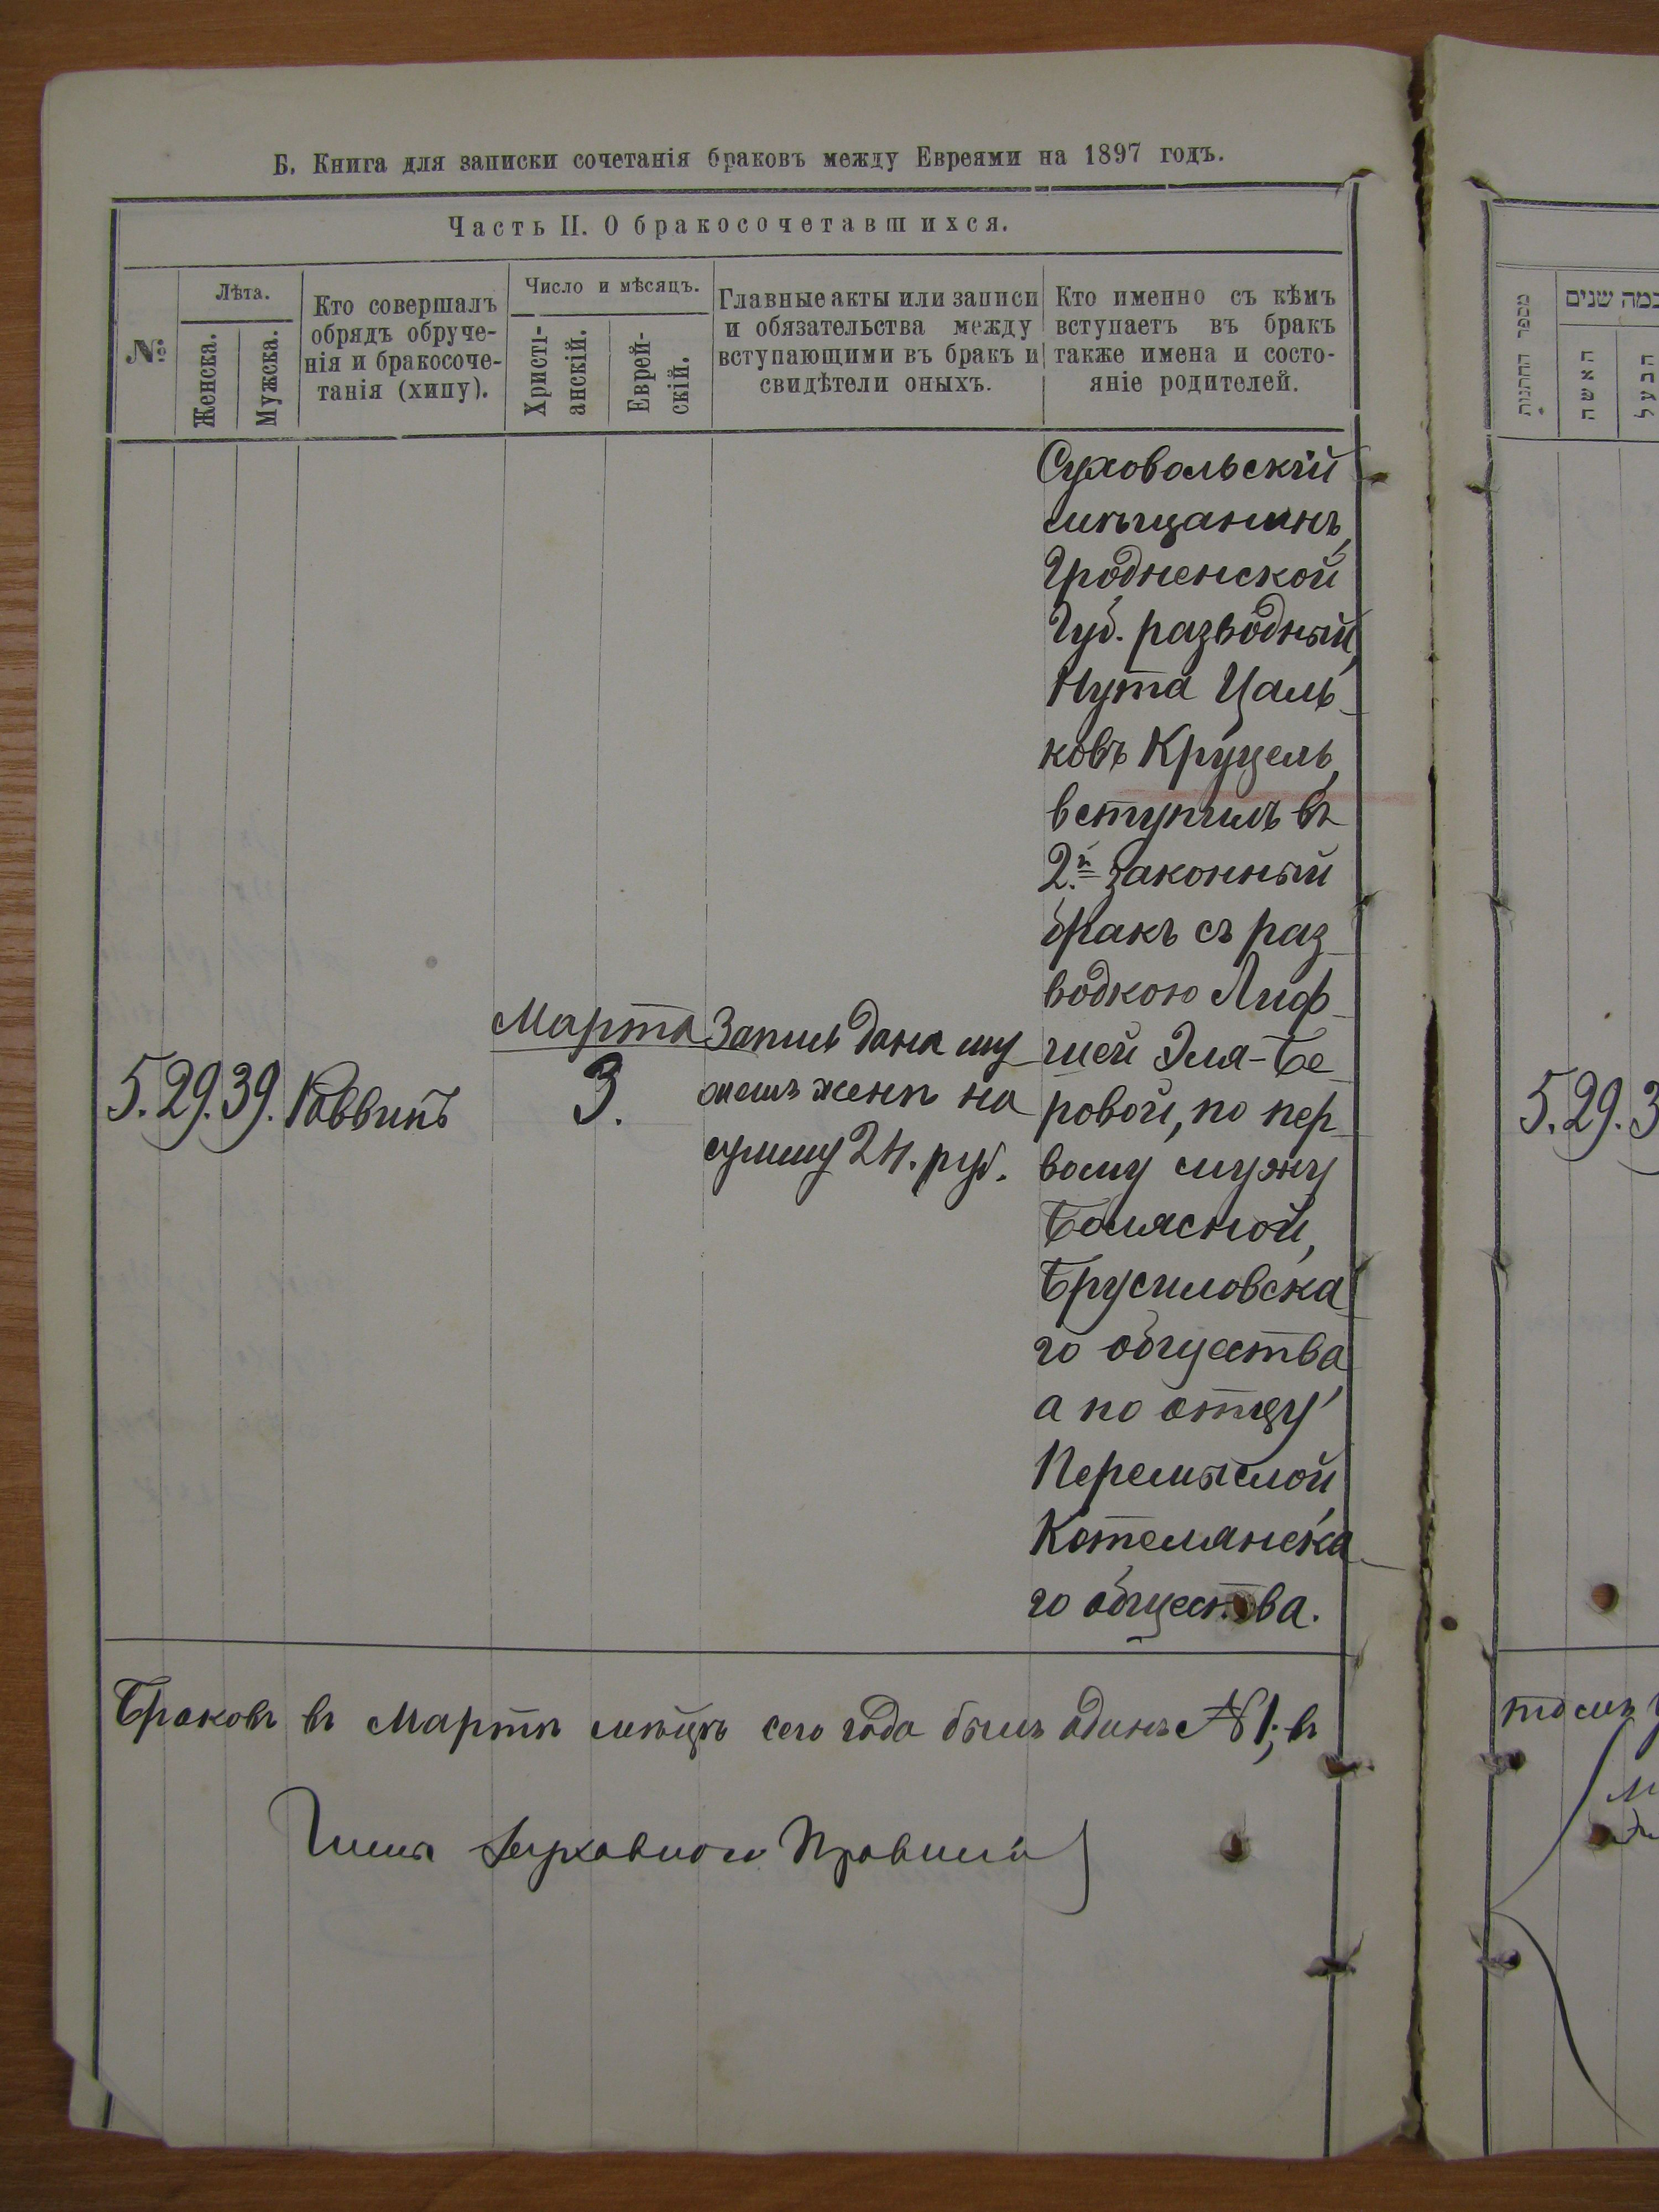 Б. Книга для записки сочетанія браковъ между Евреями на 1897 годъ.
Часть II. О бракосочетавшихся.
№
Лѣта.
Женска.
Мужска.
Кто совершалъ
обрядъ обруче-
нія и бракосоче-
танія (хипу).
Число и мѣсяцъ.
Христі-
анскій.
Еврей-
скій.
Главные акты или записи
и обязательства между
вступающими въ бракъ и
свидѣтели оныхъ.
Кто именно съ кѣмъ
вступаетъ въ бракъ
также имена и состо-
яніе родителей.
5. 29. 39. Раввинъ
Марта
3.
Запись дана му
жемъ женѣ на
сумму 24. руб.
Суховольскій
мѣщанинъ,
Гродненской
Губ. разводный,
Нута Цаль-
ковъ Круцель,
вступилъ въ
2.й законный
бракъ съ раз-
водкою Лиф-
шей Эля-Бе-
ровой, по пер-
вому мужу
Болясной,
Брусиловска-
го общества
а по отцу
Перемыслой
Котелянска-
го общества.
Браковъ въ Мартѣ мѣцѣ сего года былъ одинъ №1; въ
מספר החתנות
כמה שנים
האשה
הבעל
5. 29. 3
томъ